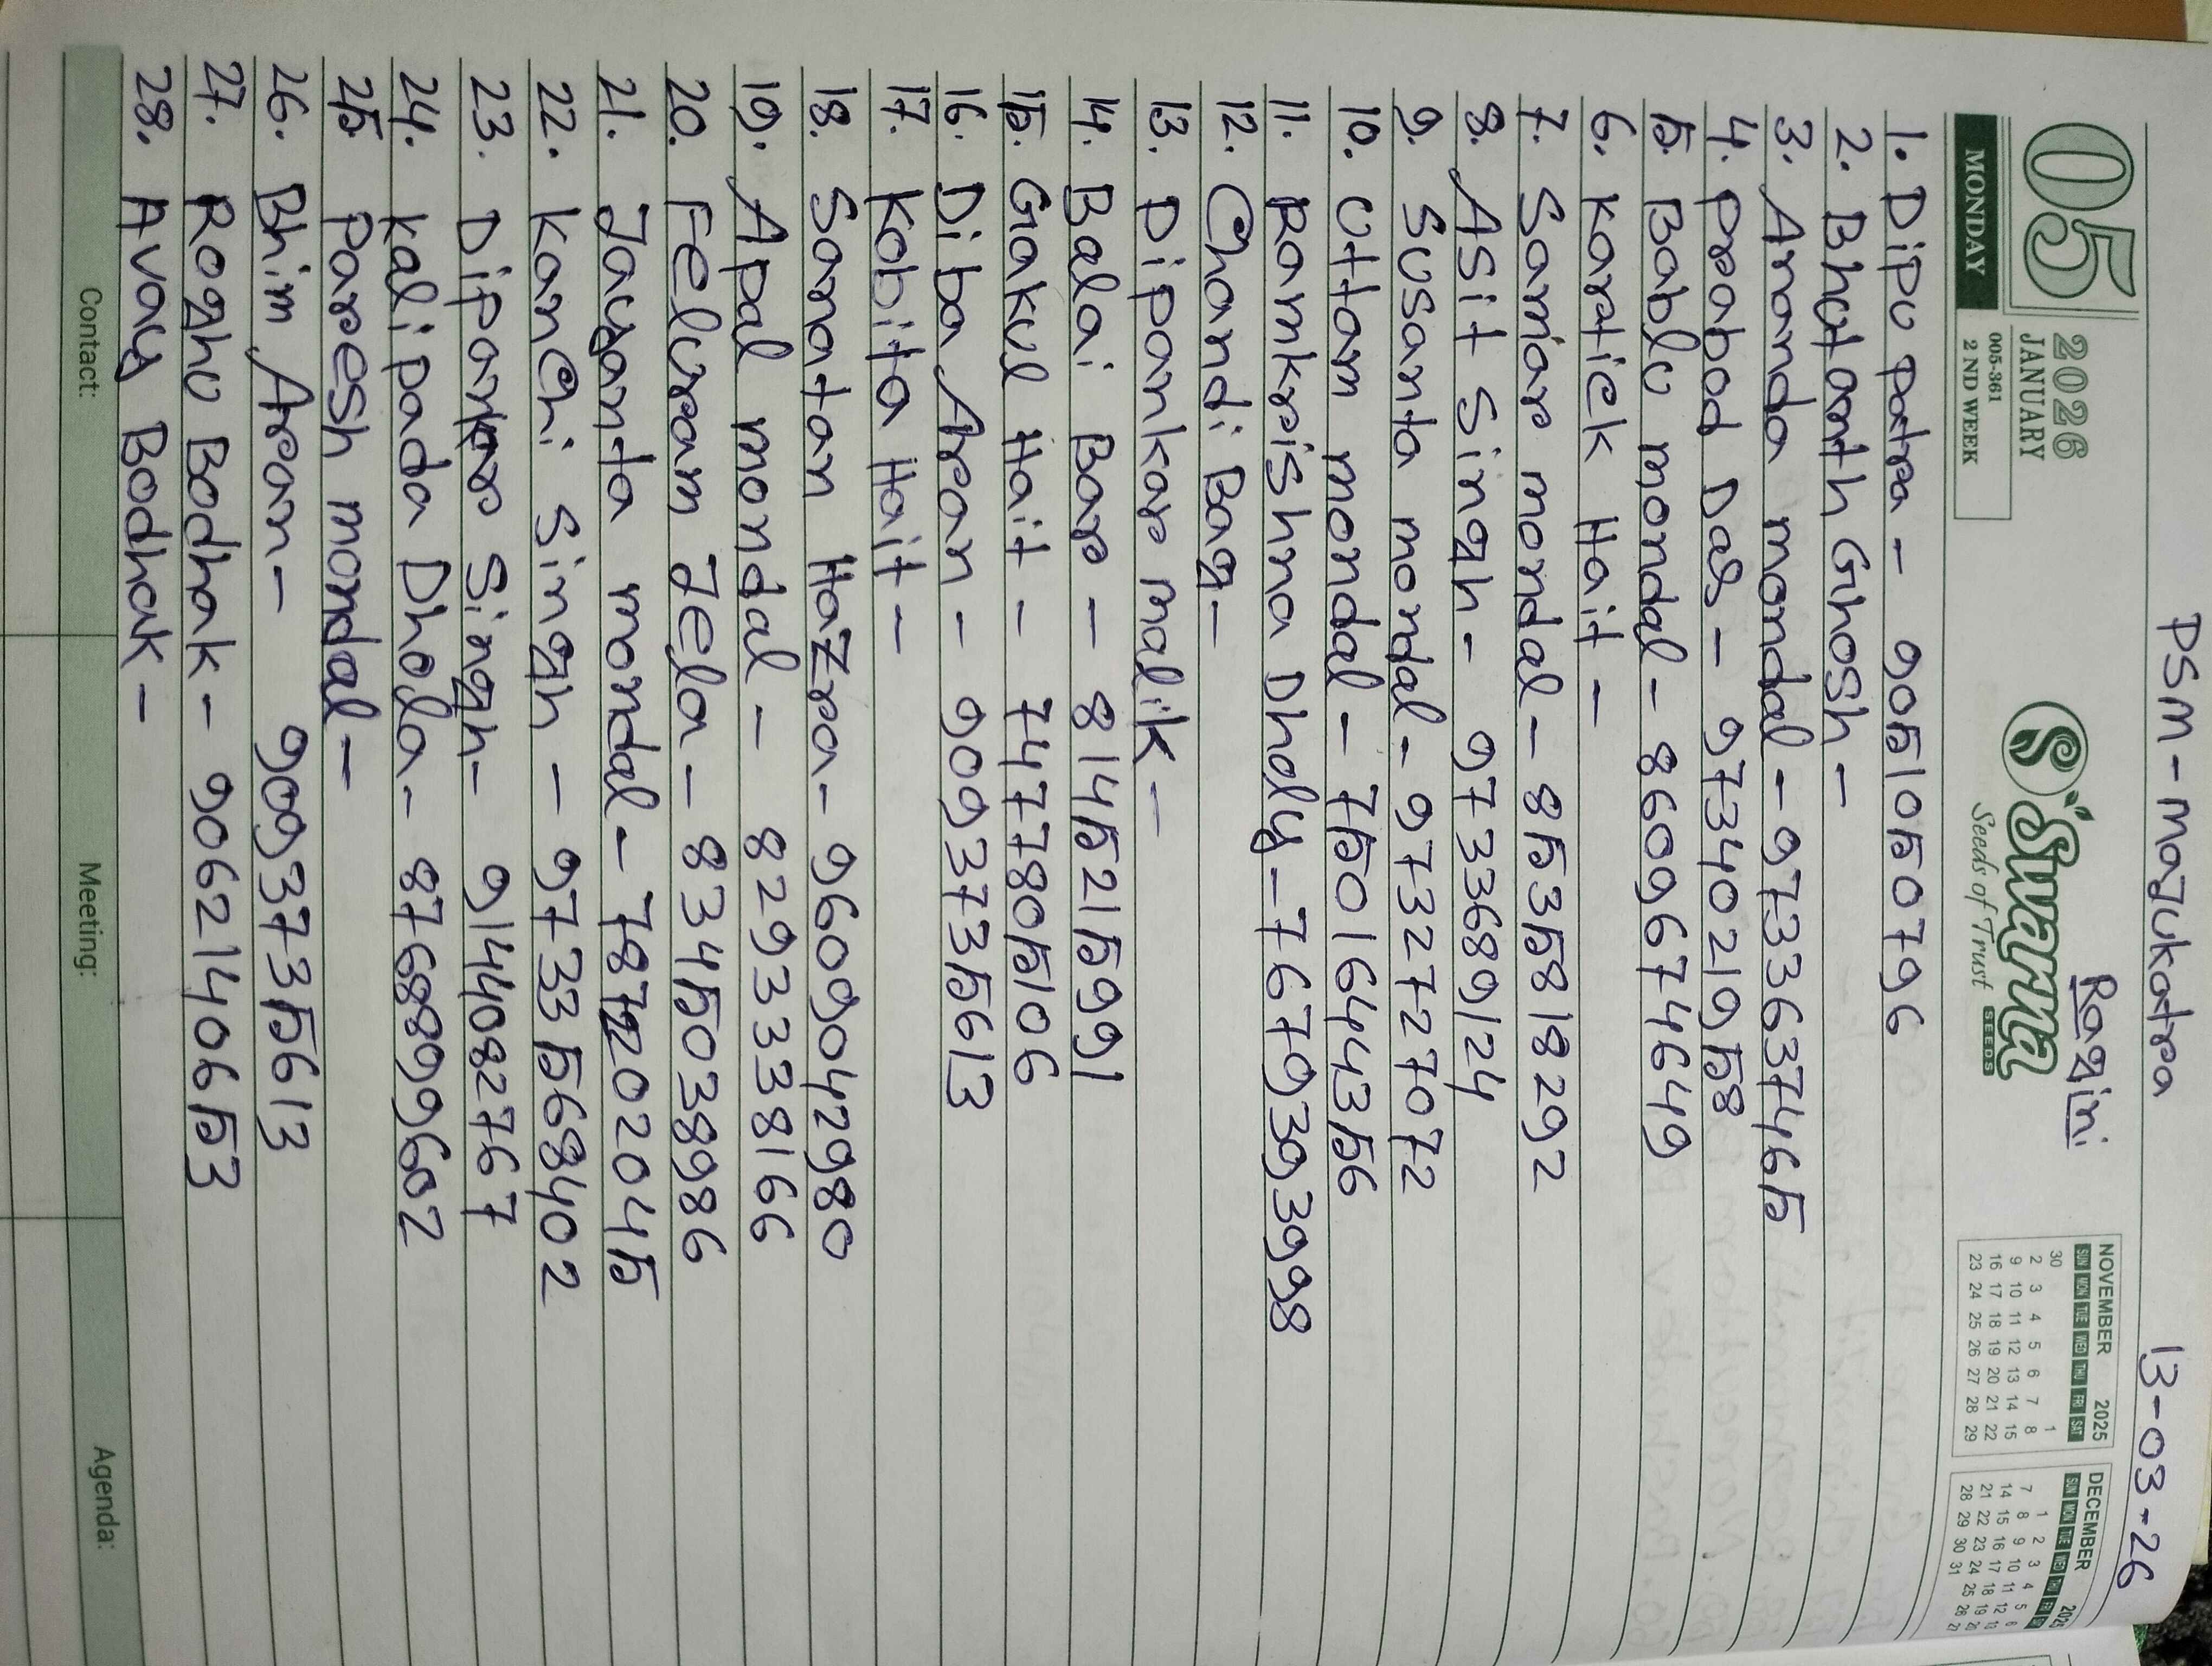 PSM - Majukatra 13-03-26
05
MONDAY
2026
JANUARY
005-361
2 ND WEEK
S
Swarna
Seeds of Trust SEEDS
Ragini
NOVEMBER 2025
SUN MON TUE WED THU FRI SAT
30 1
2 3 4 5 6 7 8
9 10 11 12 13 14 15
16 17 18 19 20 21 22
23 24 25 26 27 28 29
DECEMBER
SUN MON TUE WED THU FRI
1 2 3 4 5 6
7 8 9 10 11 12
14 15 16 17 18 19
21 22 23 24 25 26
28 29 30 31
1. Dipu patra - 9051050796
2. Bhutanth Ghosh -
3. Ananda mondal - 9733637465
4. prabad Das - 9734021958
5. Bablu mondal - 8609674649
6. Kartick Hait -
7. Samar mondal - 8535818292
8. Asit Singh - 9733689124
9. Susanta mondal - 9732727072
10. Uttam mondal - 7501644356
11. Ramkrishna Dholy - 7679393998
12. Chandi Bag -
13. Dipankar malik -
14. Balai Bar - 8145215991
15. Gakul Hait - 7477805106
16. Diba Aran - 9093735613
17. Kabita Hait -
18. Sanatan Hazra - 9609042980
19. Apal mondal - 8293338166
20. Feluram Jela - 8345038986
21. Jayanta mondal - 787202045
22. Kanchi Singh - 9733568402
23. Dipankar Singh - 9144082767
24. Kalipada Dhola - 8768899602
25. Paresh mondal -
26. Bhim Aran - 9093735613
27. Roghu Bodhak - 9062140653
28. Avay Bodhak -
Contact: Meeting: Agenda: